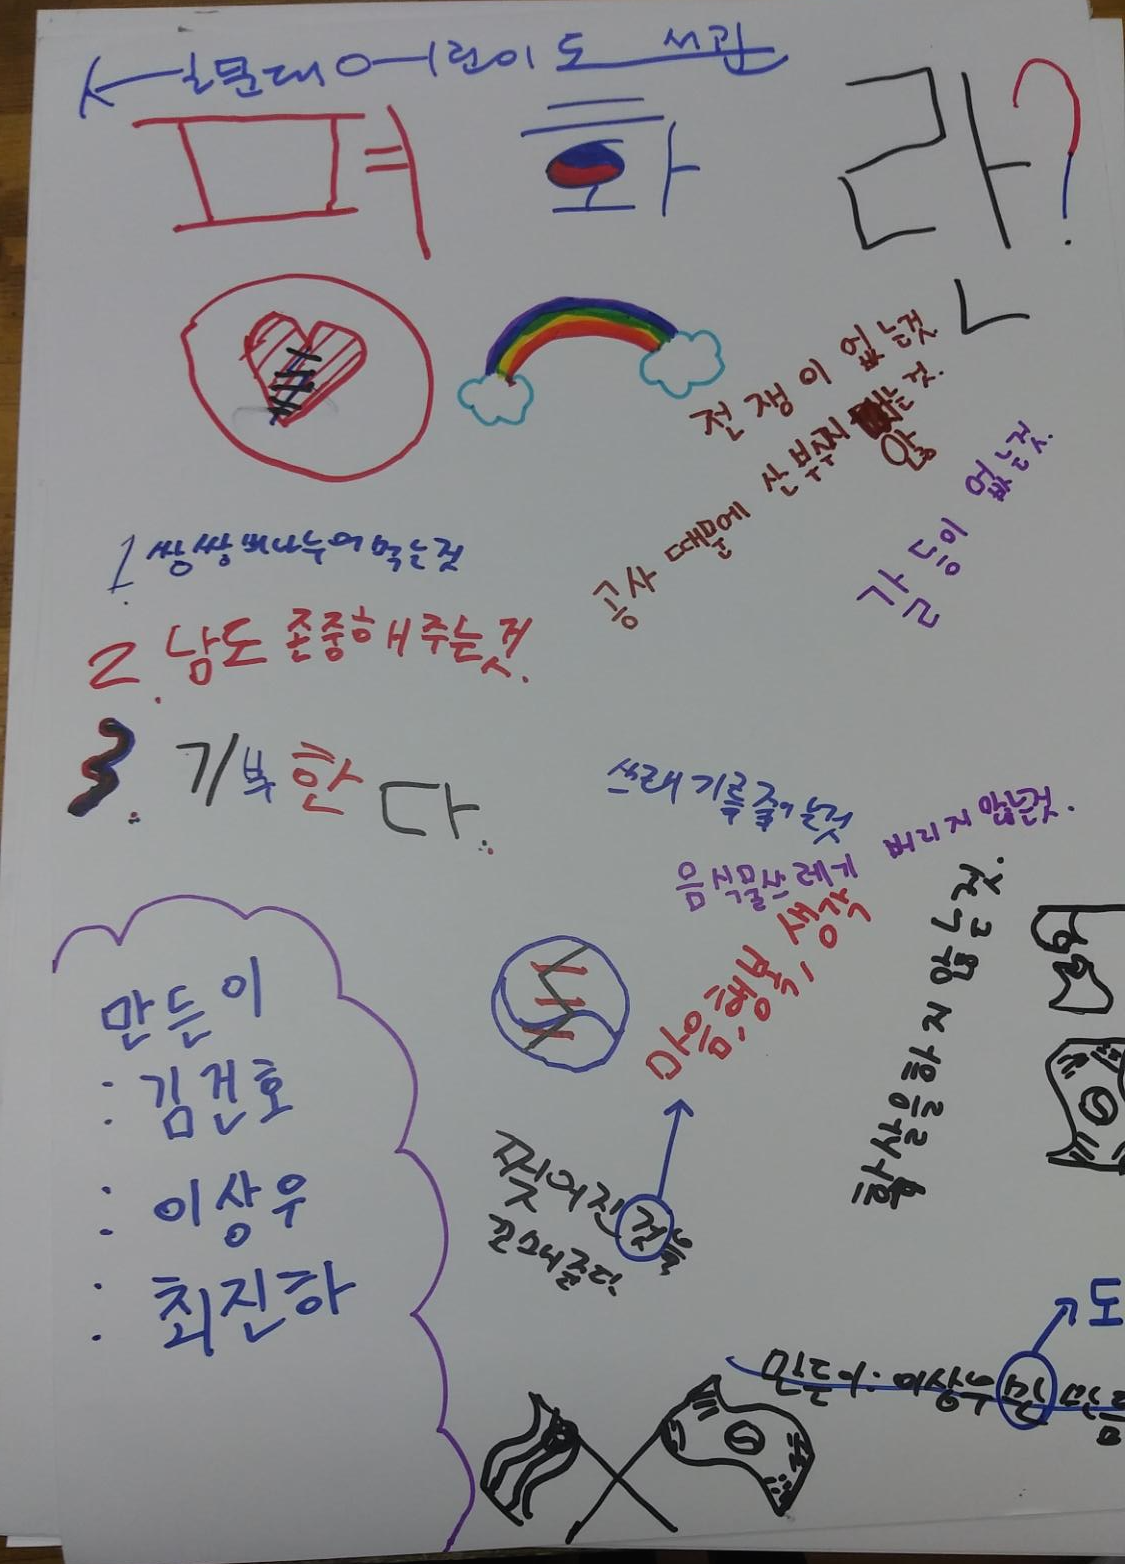 서문대어린이도서관
평화란?
전쟁이 없는것
공사 때문에 산 부수지 않는것.
갈등이 없는것.
1. 쌍쌍바 나누어먹는것
2. 남도 존중해주는것.
3. 기부한다.
쓰래기를 줍는것
음식물쓰레기 버리지 않는것.
마음, 행복, 생각
찢어진 것을
꼬매준다.
만든이
: 김건호
: 이상우
: 최진하
만든이: 이상우 만 만듬
도